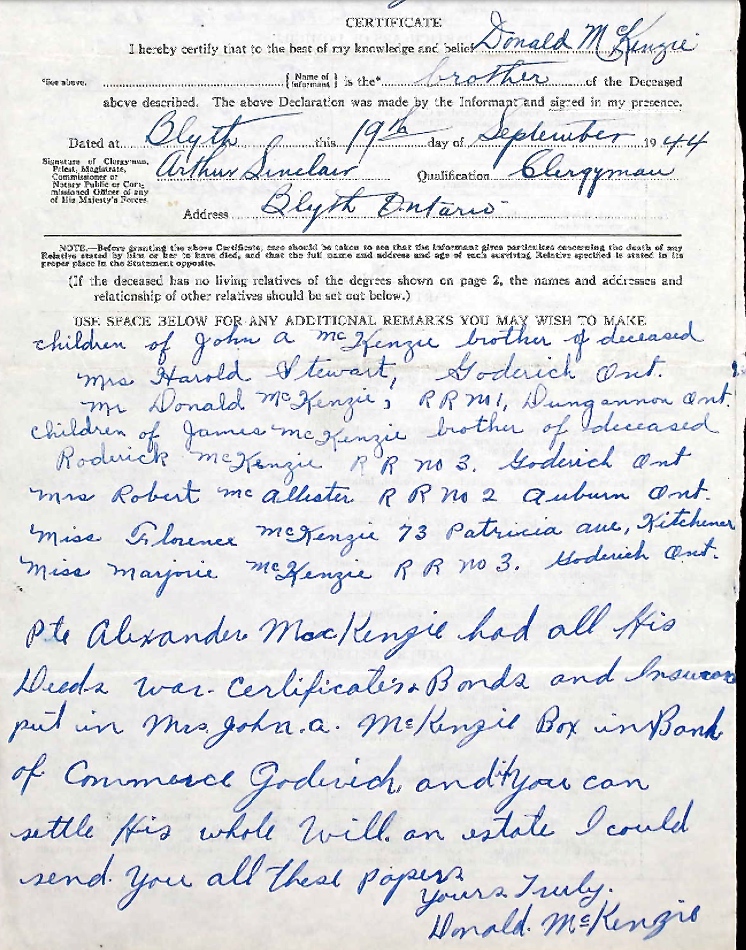 CERTIFICATE
I hereby certify that to the best of my knowledge and belief Donald McKenzie
*See above. { Name of Informant } is the* brother of the Deceased
above described. The above Declaration was made by the Informant and signed in my presence.
Dated at Blyth this 19th day of September 1944
Signature of Clergyman, Priest, Magistrate, Commissioner or Notary Public or Commissioned Officer of any of His Majesty's Forces. Arthur Sinclair Qualification Clergyman
Address Blyth Ontario
NOTE.—Before granting the above Certificate, care should be taken to see that the Informant gives particulars concerning the death of any
Relative stated by him or her to have died, and that the full name and address and age of each surviving Relative specified is stated in its
proper place in the Statement opposite.
(If the deceased has no living relatives of the degrees shown on page 2, the names and addresses and
relationship of other relatives should be set out below.)
USE SPACE BELOW FOR ANY ADDITIONAL REMARKS YOU MAY WISH TO MAKE
children of John A McKenzie brother of deceased
Mrs Harold Stewart, Goderich Ont.
Mr Donald McKenzie, R R No 1, Dungannon Ont.
children of James McKenzie brother of deceased
Roderick McKenzie R R no 3. Goderich Ont
Mrs Robert McAllister R R No 2 Auburn Ont.
Miss Florence McKenzie 73 Patricia ave, Kitchener
Miss Marjorie McKenzie R R no 3. Goderich Ont.
Pte Alexander MacKenzie had all His
Deeds war. Certificates Bonds and
put in Mrs. John. a. McKenzie Box in Bank
of Commerce Goderich, and if you can
settle His whole Will. an estate I could
send. You all these papers
Yours Truly.
Donald. McKenzie